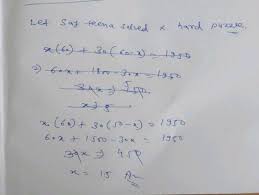 Let Say teena solved x hard puzzle.
x(60) + 30(60-x) = 1950
⇒ 60x + 1800 - 30x = 1950
30x ⇒ 150
x ⇒ 5
x(60) + 30(50-x) = 1950
60x + 1500 - 30x = 1950
30x ⇒ 450
x = 15 Ans